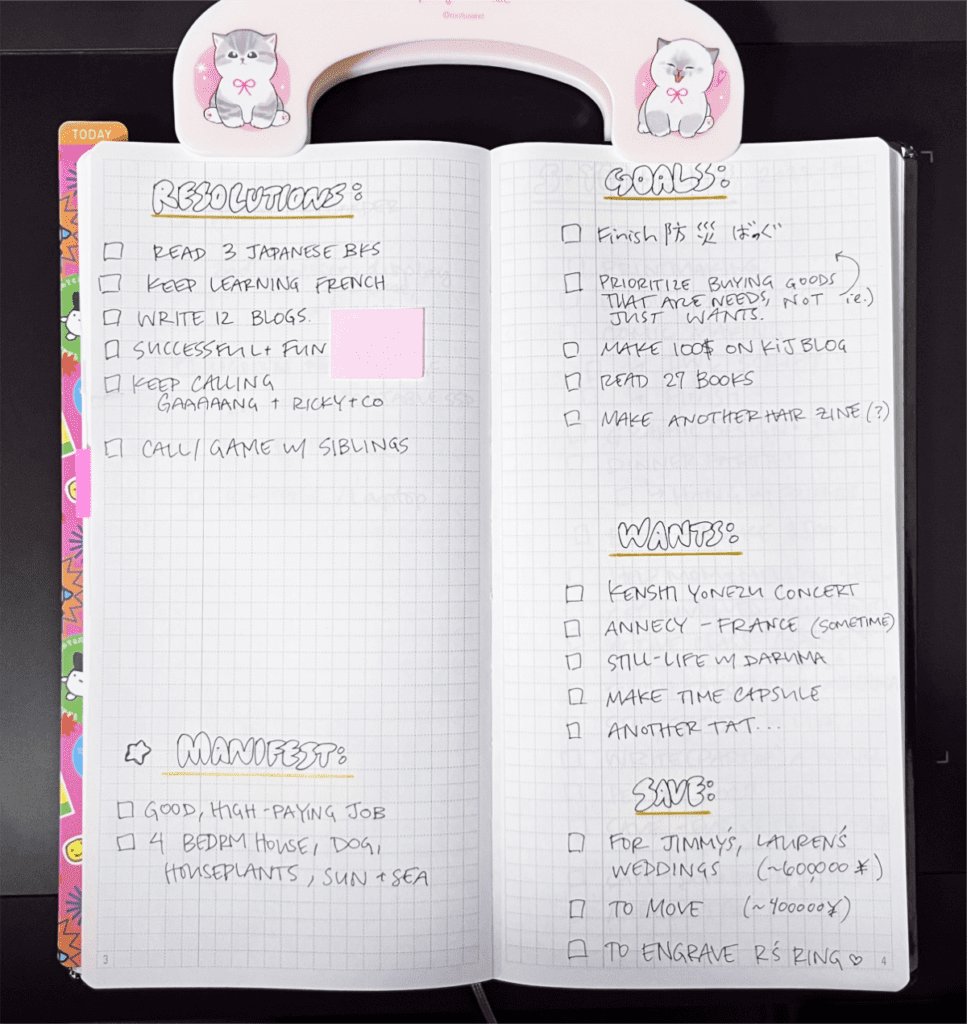 ©mofusand
TODAY
RESOLUTIONS:
☐ READ 3 JAPANESE BKS
☐ KEEP LEARNING FRENCH
☐ WRITE 12 BLOGS.
☐ SUCCESSFUL + FUN
☐ KEEP CALLING
GAAAAANG + RICKY + CO
☐ CALL/GAME W/ SIBLINGS
☆ MANIFEST:
☐ GOOD, HIGH-PAYING JOB
☐ 4 BEDRM HOUSE, DOG,
HOUSEPLANTS, SUN + SEA
3
GOALS:
☐ Finish 防災 ばっぐ
☐ PRIORITIZE BUYING GOODS
THAT ARE NEEDS, NOT i.e.)
JUST WANTS.
☐ MAKE 100$ ON KIJ BLOG
☐ READ 27 BOOKS
☐ MAKE ANOTHER HAIR ZINE (?)
WANTS:
☐ KENSHI YONEZU CONCERT
☐ ANNECY - FRANCE (SOMETIME)
☐ STILL-LIFE W/ DARUMA
☐ MAKE TIME CAPSULE
☐ ANOTHER TAT...
SAVE:
☐ FOR JIMMY'S, LAUREN'S
WEDDINGS (~600,000¥)
☐ TO MOVE (~400000¥)
☐ TO ENGRAVE R'S RING ♡
4